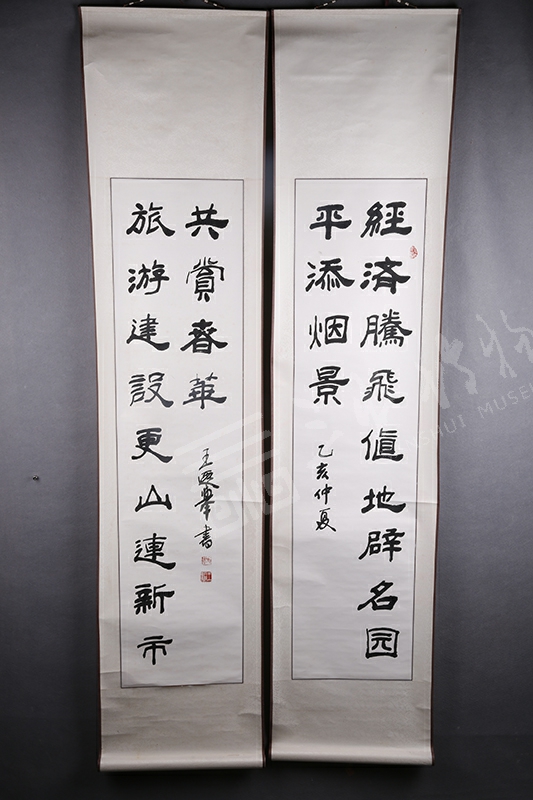 經済騰飛值地辟名园
平添烟景
乙亥仲夏
旅游建設更山連新市
共賞春華
王遐舉書
SHUI MUSE